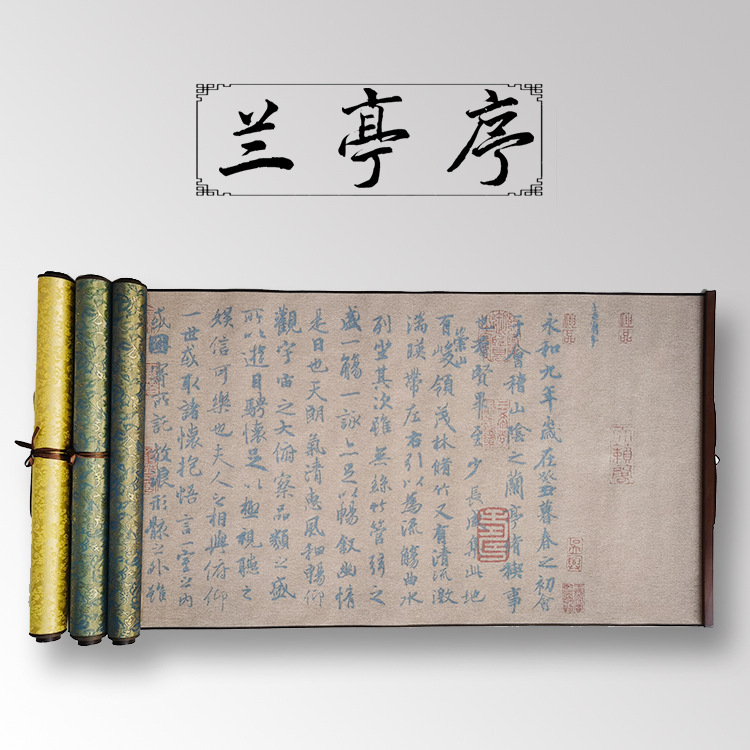 兰亭序
永和九年歲在癸丑暮春之初會
于會稽山陰之蘭亭脩禊事
也羣賢畢至少長咸集此地
有崇山峻領茂林脩竹又有清流激
湍暎帶左右引以為流觴曲水
列坐其次雖無絲竹管弦之
盛一觴一詠亦足以暢敘幽情
是日也天朗氣清惠風和暢仰
觀宇宙之大俯察品類之盛
所以遊目騁懷足以極視聽之
娛信可樂也夫人之相與俯仰
一世或取諸懷抱悟言一室之內
或因寄所託放浪形骸之外雖